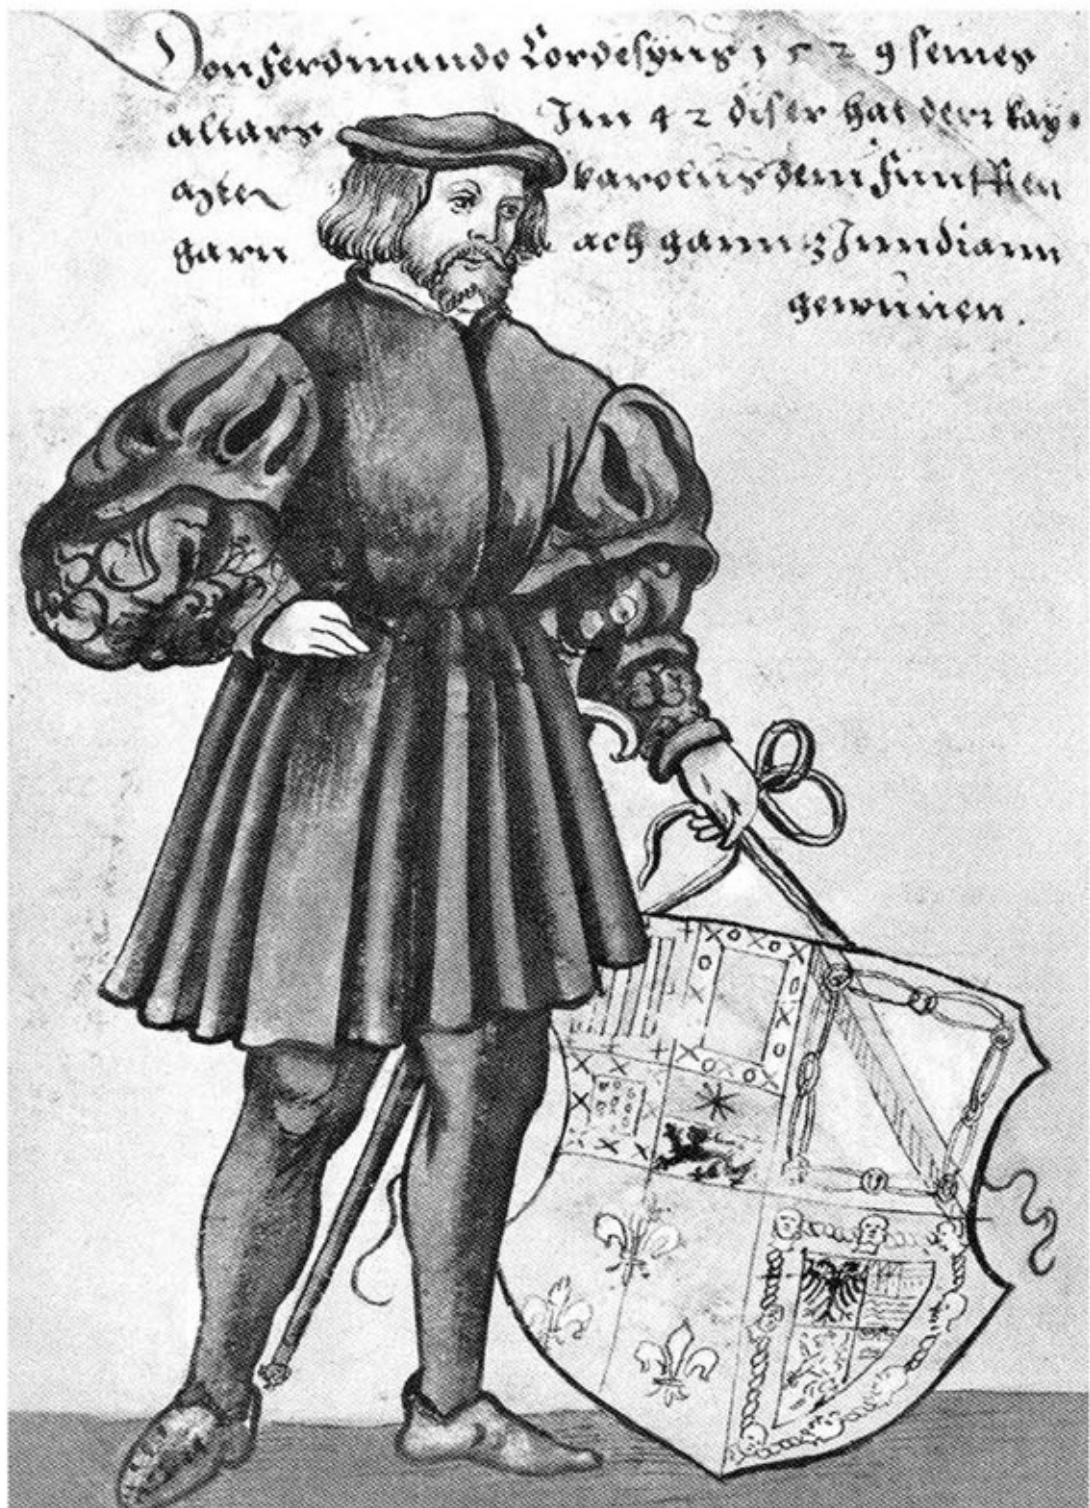 Don ferdinando Cordesyus 1529 seines
alltars Im 42 diser hat dem kay
karolus dem funfften
ach gantz Inndiann
gewunnen.